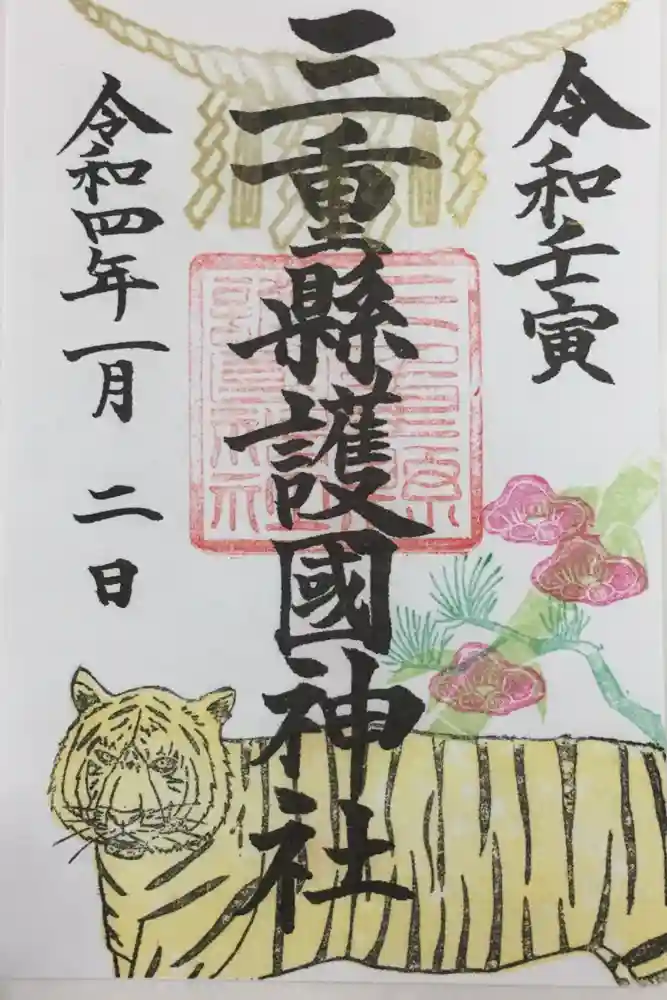 令和壬寅
三重縣護國神社
令和四年一月二日